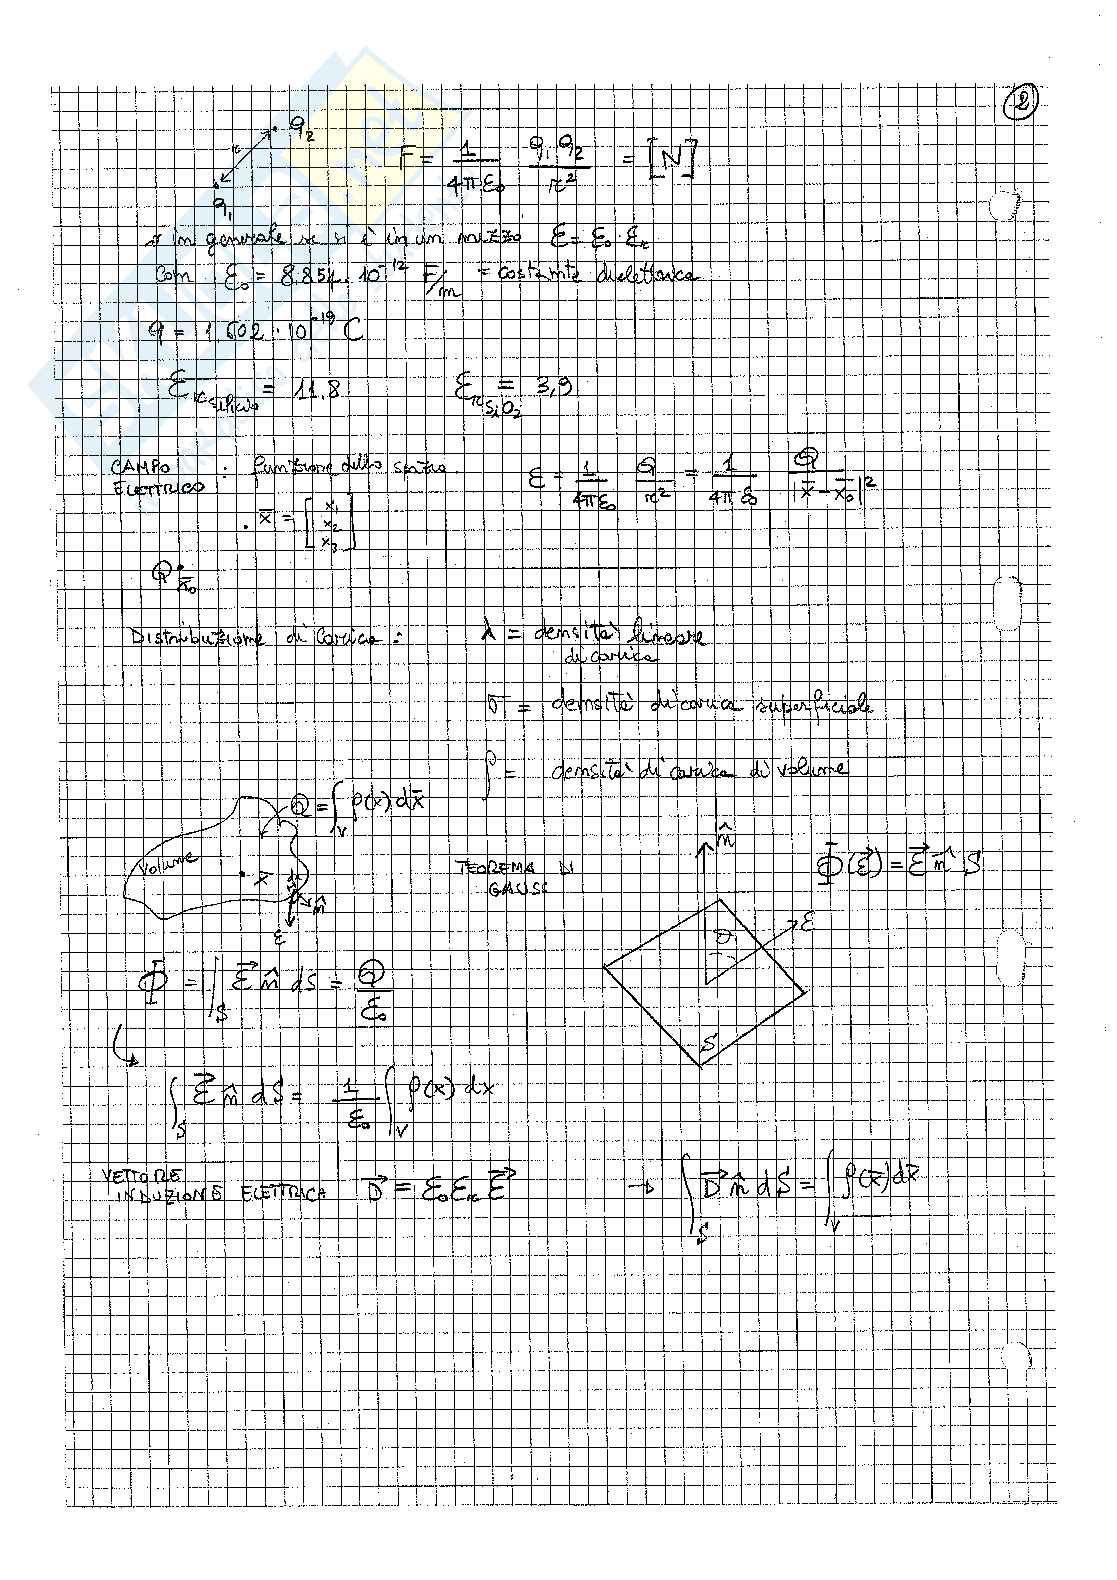 2
q2
r
q1
F = 1/(4πε0) q1 q2/r² = [N]
in generale se si è in un mezzo ε = ε0 · εr
Con ε0 = 8.854 · 10^-12 F/m = costante dielettrica
q = 1.602 · 10^-19 C
εr silicio = 11.8    εr SiO2 = 3,9
CAMPO ELETTRICO : funzione dello spazio    ε = 1/(4πε0) Q/r² = 1/(4πε0) Q/|x̄ - x̄0|²
. x̄ = [x1 x2 x3]
Q x̄0
Distribuzione di carica :    λ = densità lineare
di carica
σ = densità di carica superficiale
ρ = densità di carica di volume
Q = ∫V ρ(x) dx̄
volume
x
n̂
ε
TEOREMA DI
GAUSS
n̂
Φ(ε⃗) = ε⃗ n̂ S
ϑ
ε
S
Φ = ∫S ε⃗ n̂ dS = Q/ε0
∫S ε⃗ n̂ dS = 1/ε0 ∫V ρ(x) dx
VETTORE
INDUZIONE ELETTRICA D⃗ = ε0 εr ε⃗ → ∫S D⃗ n̂ dS = ∫V ρ(x̄) dx̄